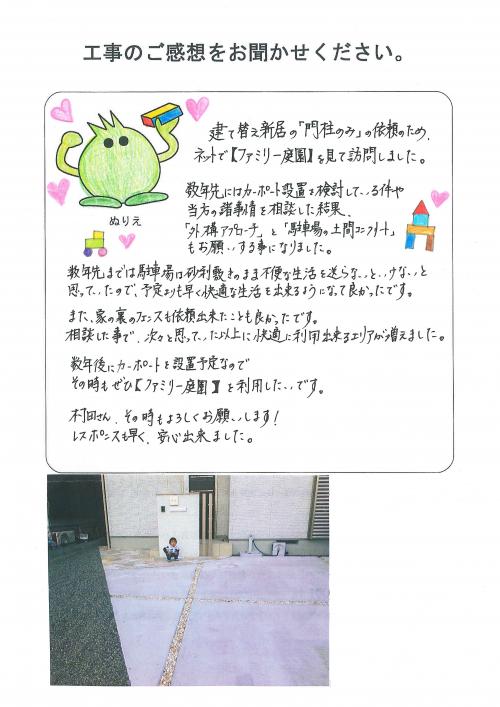 工事のご感想をお聞かせください。
建て替え新居の「門柱のみ」の依頼のため、
ネットで【ファミリー庭園】を見て訪問しました。
ぬりえ
数年先にはカーポート設置を検討している件や
当方の諸事情を相談した結果、
「外構アプローチ」と「駐車場の土間コンクリート」
もお願いする事になりました。
数年先までは駐車場は砂利敷きのまま不便な生活を送らないといけないと
思っていたので、予定よりも早く快適な生活を出来るようになって良かったです。
また、家の裏のフェンスも依頼出来たことも良かったです。
相談した事で、次々と思っていた以上に快適に利用出来るエリアが増えました。
数年後にカーポートを設置予定なので
その時もぜひ【ファミリー庭園】を利用したいです。
村田さん、その時もよろしくお願いします!
レスポンスも早く、安心出来ました。